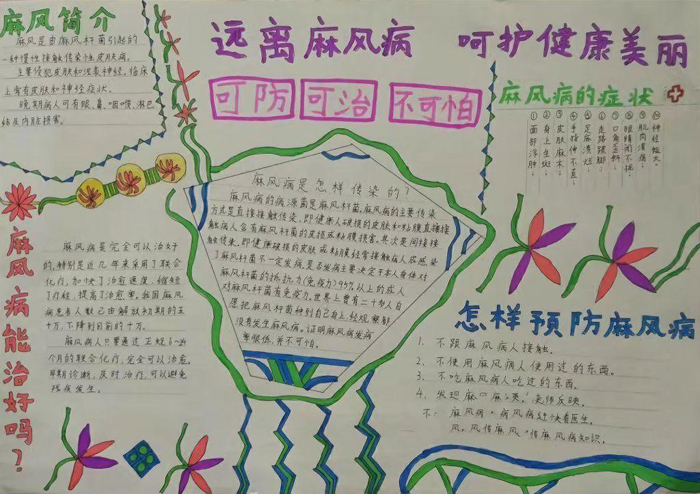 麻风简介
麻风是由麻风杆菌引起的
一种慢性接触传染性皮肤病,
主要侵犯皮肤和周表神经,临床
上常有皮肤和神经症状。
晚期病人可有眼、鼻、咽喉、淋巴
结及内脏损害。
远离麻风病 呵护健康美丽
可防 可治 不可怕
麻风病的症状
①面部浮肿。
②身上生斑
③皮肤麻木?
④手指伸不直。
⑤足底溃烂
⑥走路跷脚?
⑦口角歪斜。
⑧眼睛闭不拢。
⑨肌肉消瘦
⑩神经粗大。
麻风病是怎样传染的?
麻风病的病源菌是麻风杆菌,麻风病的主要传染
方式是直接接触传染,即健康人破损的皮肤和粘膜直接接
触病人含有麻风杆菌的皮损或粘膜损害,其次是间接接
触传染,即健康破损的皮肤或粘膜经常接触病人 或感染
了麻风杆菌不一定发病,是否发病主要决定于本人身体对
麻风杆菌的抵抗力(免疫力)95%以上的成人
对麻风杆菌有免疫力,世界上曾有二十多人自
愿把麻风杆菌种到自己身上,经观察都
没有发生麻风病,证明麻风病发病
率很低,并不可怕。
麻风病能治好吗?
麻风病是完全可以治好
的,特别是近几年来采用了联合
化疗,加快了治愈速度,缩短
了疗程,提高了治愈率,我国麻风
病患者人数已由解放初期的五
十万,下降到目前的十万。
麻风病人只要通过正规6~24
个月的联合化疗,完全可以治愈,
早期诊断,及时治疗,可以避免
残疾发生。
怎样预防麻风病
1. 不跟麻风病人接触。
2. 不使用麻风病人使用过的东西。
3. 不吃麻风病人吃过的东西。
4. 发现麻 老师反映。
麻风病 病风病赶快看医生。
麻风病知识。